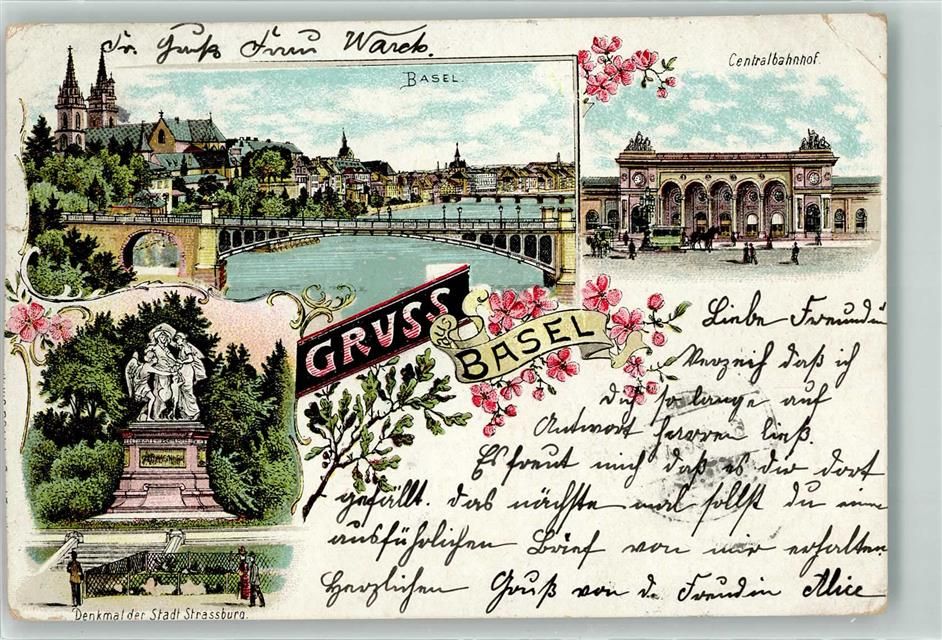 Fr. Gruß Frau Warck.
BASEL.
Centralbahnhof.
GRUSS
BASEL
Liebe Freundin
Verzeih daß ich
dich so lange auf
Antwort harren ließ.
Es freut mich daß es dir dort
gefällt. das nächste mal sollst du einen
ausführlichen Brief von mir erhalten
Herzlichen Gruß von d. Freundin Alice
Denkmal der Stadt Strassburg.